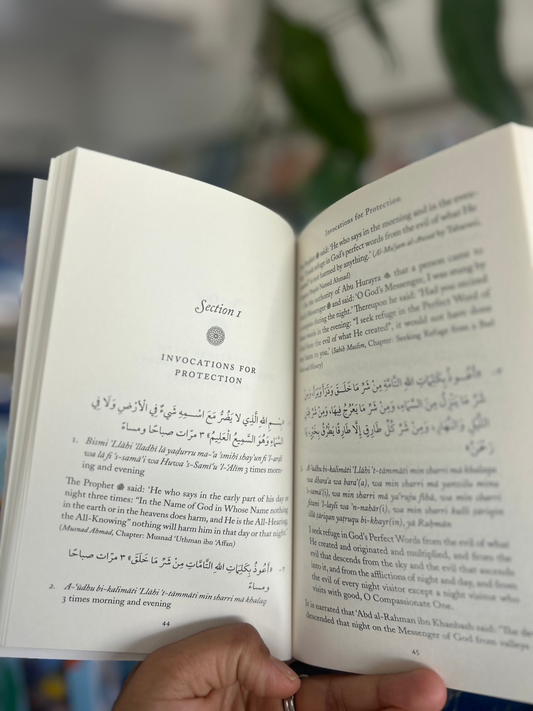 Section 1
INVOCATIONS FOR
PROTECTION
بِسْمِ اللهِ الَّذِي لَا يَضُرُّ مَعَ اسْمِهِ شَيْءٌ فِي الْأَرْضِ وَلَا فِي
السَّمَاءِ وَهُوَ السَّمِيعُ الْعَلِيمُ» ٣ مرّات صباحًا ومساءً
1. Bismi 'Llāhi 'lladhī lā yaḍurru ma-'a 'smihi shay'un fi 'l-arḍi
wa lā fi 's-samā'i wa Huwa 's-Samī'u 'l-'Alīm 3 times morn-
ing and evening
The Prophet ﷺ said: 'He who says in the early part of his day or
night three times: "In the Name of God in Whose Name nothing
in the earth or in the heavens does harm, and He is the All-Hearing,
the All-Knowing" nothing will harm him in that day or that night.'
(Musnad Ahmad, Chapter: Musnad 'Uthman ibn 'Affan)
٢- «أَعُوذُ بِكَلِمَاتِ اللهِ التَّامَّاتِ مِنْ شَرِّ مَا خَلَقَ» ٣ مرات صباحًا
ومساءً
2. A-'ūdhu bi-kalimāti 'Llāhi 't-tāmmāti min sharri mā khalaq
3 times morning and evening
44
Invocations for Protection
The Prophet ﷺ said: 'He who says in the morning and in the eve-
refuge in God's perfect words from the evil of what He
is not harmed by anything.' (Al-Mu'jam al-Awsat by Tabarani,
Musnad Ahmad)
the authority of Abu Hurayra that a person came to
Messenger ﷺ and said: 'O God's Messenger, I was stung by
during the night.' Thereupon he said: 'Had you recited
words in the evening: "I seek refuge in the Perfect Word of
from the evil of what He created", it would not have done
harm to you.' (Sahih Muslim, Chapter: Seeking Refuge from a Bad
«أَعُوذُ بِكَلِمَاتِ اللهِ التَّامَّةِ مِنْ شَرِّ مَا خَلَقَ وَذَرَأَ وَبَرَأَ، وَمِنْ
شَرِّ مَا يَنْزِلُ مِنَ السَّمَاءِ، وَمِنْ شَرِّ مَا يَعْرُجُ فِيهَا، وَمِنْ شَرِّ فِتَنِ
اللَّيْلِ وَالنَّهَارِ، وَمِنْ شَرِّ كُلِّ طَارِقٍ إِلَّا طَارِقًا يَطْرُقُ بِخَيْرٍ، يَا
رَحْمَنُ»
A-'ūdhu bi-kalimāti 'Llāhi 't-tāmmāti min sharri mā khalaqa
wa dhara'a wa bara'(a), wa min sharri mā yanzilu mina
's-samā'(i), wa min sharri mā ya'ruju fihā, wa min sharri
fitani 'l-layli wa 'n-nahār(i), wa min sharri kulli ṭāriqin
illā ṭāriqan yaṭruqu bi-khayr(in), yā Raḥmān
I seek refuge in God's Perfect Words from the evil of what
He created and originated and multiplied, and from the
evil that descends from the sky and the evil that ascends
into it, and from the afflictions of night and day, and from
the evil of every night visitor except a night visitor who
visits with good, O Compassionate One.
It is narrated that 'Abd al-Rahman ibn Khanbash said: "The
descended that night on the Messenger of God from valleys
45